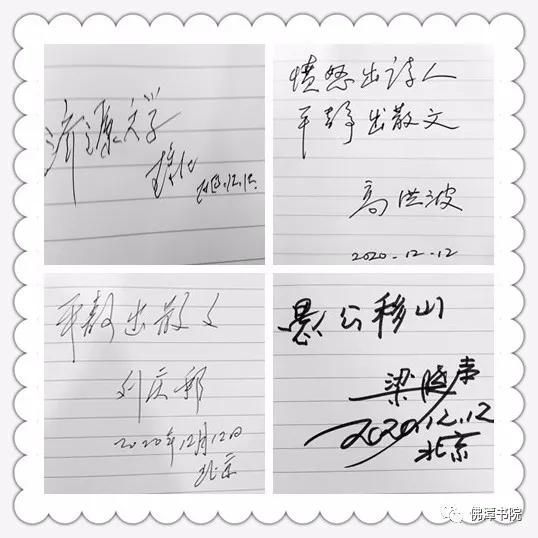 济源文学
2020.12.12
愤怒出诗人
平静出散文
高洪波
2020-12-12
平静出散文
刘庆邦
2020年12月12日
北京
愚公移山
梁晓声
2020.12.12
北京
佛潭书院